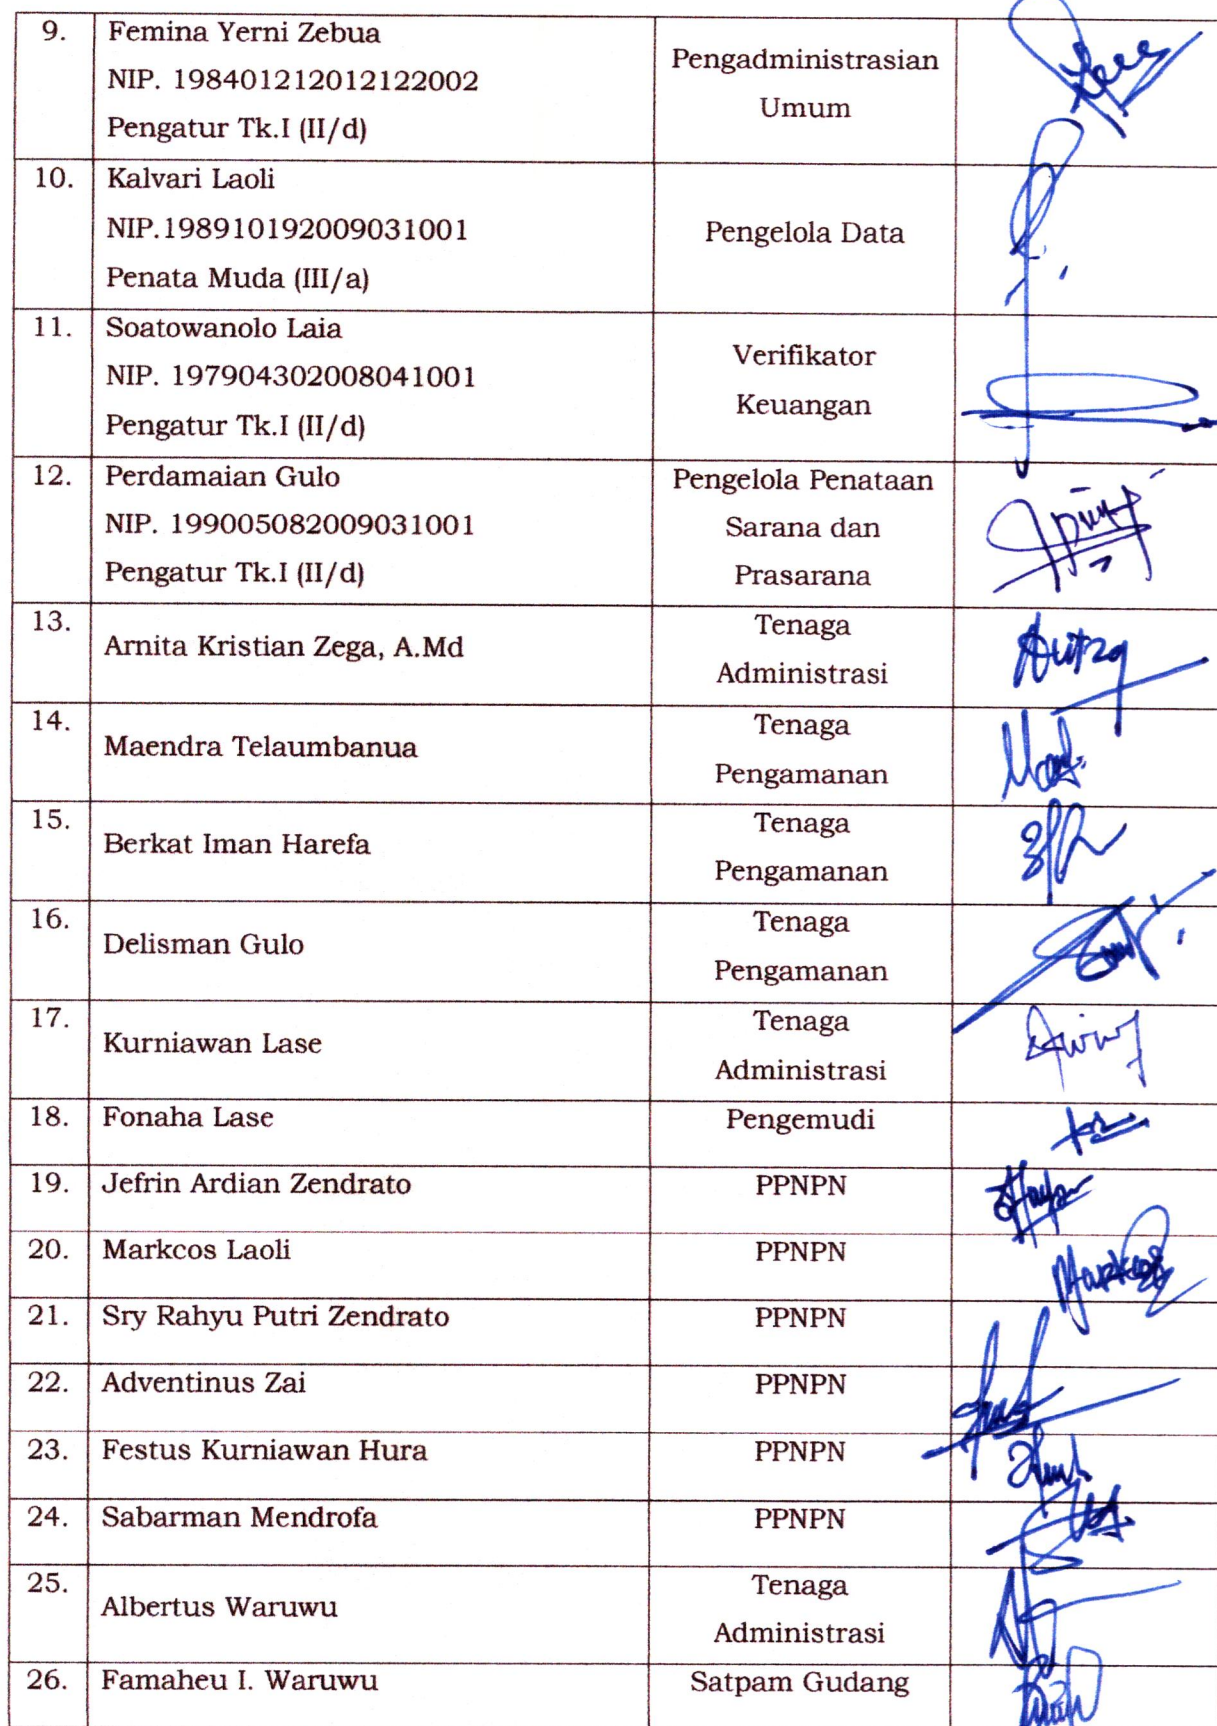 9.
Femina Yerni Zebua
NIP. 198401212012122002
Pengatur Tk.I (II/d)
Pengadministrasian
Umum
10.
Kalvari Laoli
NIP.198910192009031001
Penata Muda (III/a)
Pengelola Data
11.
Soatowanolo Laia
NIP. 197904302008041001
Pengatur Tk.I (II/d)
Verifikator
Keuangan
12.
Perdamaian Gulo
NIP. 199005082009031001
Pengatur Tk.I (II/d)
Pengelola Penataan
Sarana dan
Prasarana
13.
Arnita Kristian Zega, A.Md
Tenaga
Administrasi
14.
Maendra Telaumbanua
Tenaga
Pengamanan
15.
Berkat Iman Harefa
Tenaga
Pengamanan
16.
Delisman Gulo
Tenaga
Pengamanan
17.
Kurniawan Lase
Tenaga
Administrasi
18.
Fonaha Lase
Pengemudi
19.
Jefrin Ardian Zendrato
PPNPN
20.
Markcos Laoli
PPNPN
Markcos
21.
Sry Rahyu Putri Zendrato
PPNPN
22.
Adventinus Zai
PPNPN
23.
Festus Kurniawan Hura
PPNPN
24.
Sabarman Mendrofa
PPNPN
25.
Albertus Waruwu
Tenaga
Administrasi
26.
Famaheu I. Waruwu
Satpam Gudang